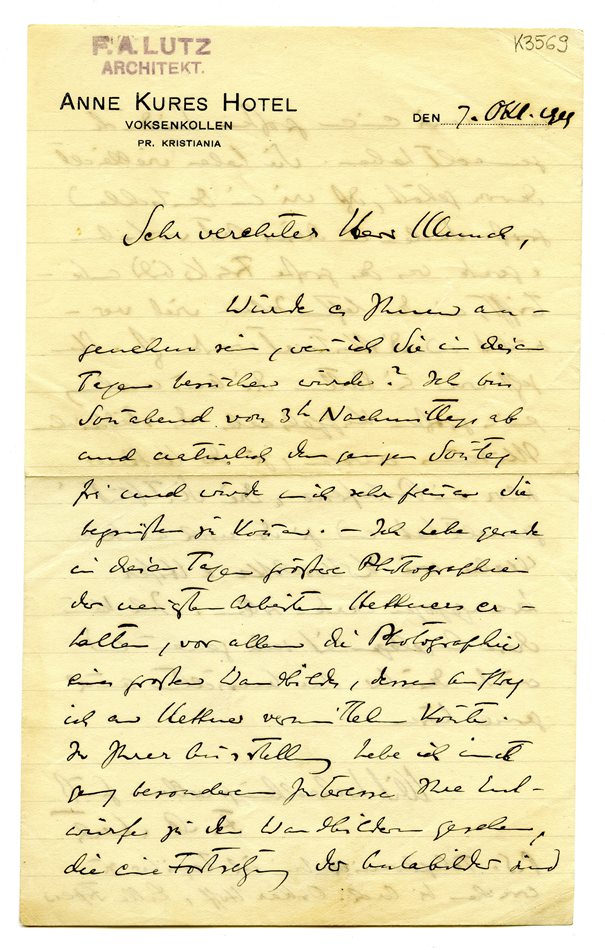 K3569
F. A. LUTZ
ARCHITEKT.
ANNE KURES HOTEL
VOKSENKOLLEN
PR. KRISTIANIA
DEN 7. Okt. 1919
Sehr verehrter Herr Munch,
Würde es Ihnen an-
genehm sein, wenn ich Sie in diesen
Tagen besuchen würde? Ich bin
Sonnabend von 3h Nachmittags ab
und natürlich den ganzen Sonntag
frei und würde mich sehr freuen Sie
begrüßen zu können. – Ich habe gerade
in diesen Tagen größere Photographien
der neuesten Arbeiten Hettners er-
halten, vor allem die Photographie
eines großen Wandbildes, dessen Auftrag
ich an Hettner vermitteln konnte.
In Ihrer Ausstellung habe ich mit
ganz besonderem Interesse Ihre Ent-
würfe zu den Wandbildern gesehen,
die eine Fortsetzung der Aulabilder sind